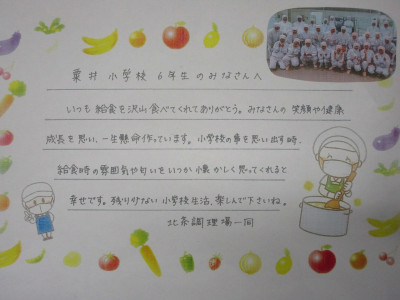 粟井小学校 6年生のみなさんへ
いつも給食を沢山食べてくれてありがとう。みなさんの笑顔や健康
成長を思い、一生懸命作っています。小学校の事を思い出す時、
給食時の雰囲気や匂いをいつか懐かしく思ってくれると
幸せです。残り少ない小学校生活、楽しんで下さいね。
北条調理場一同